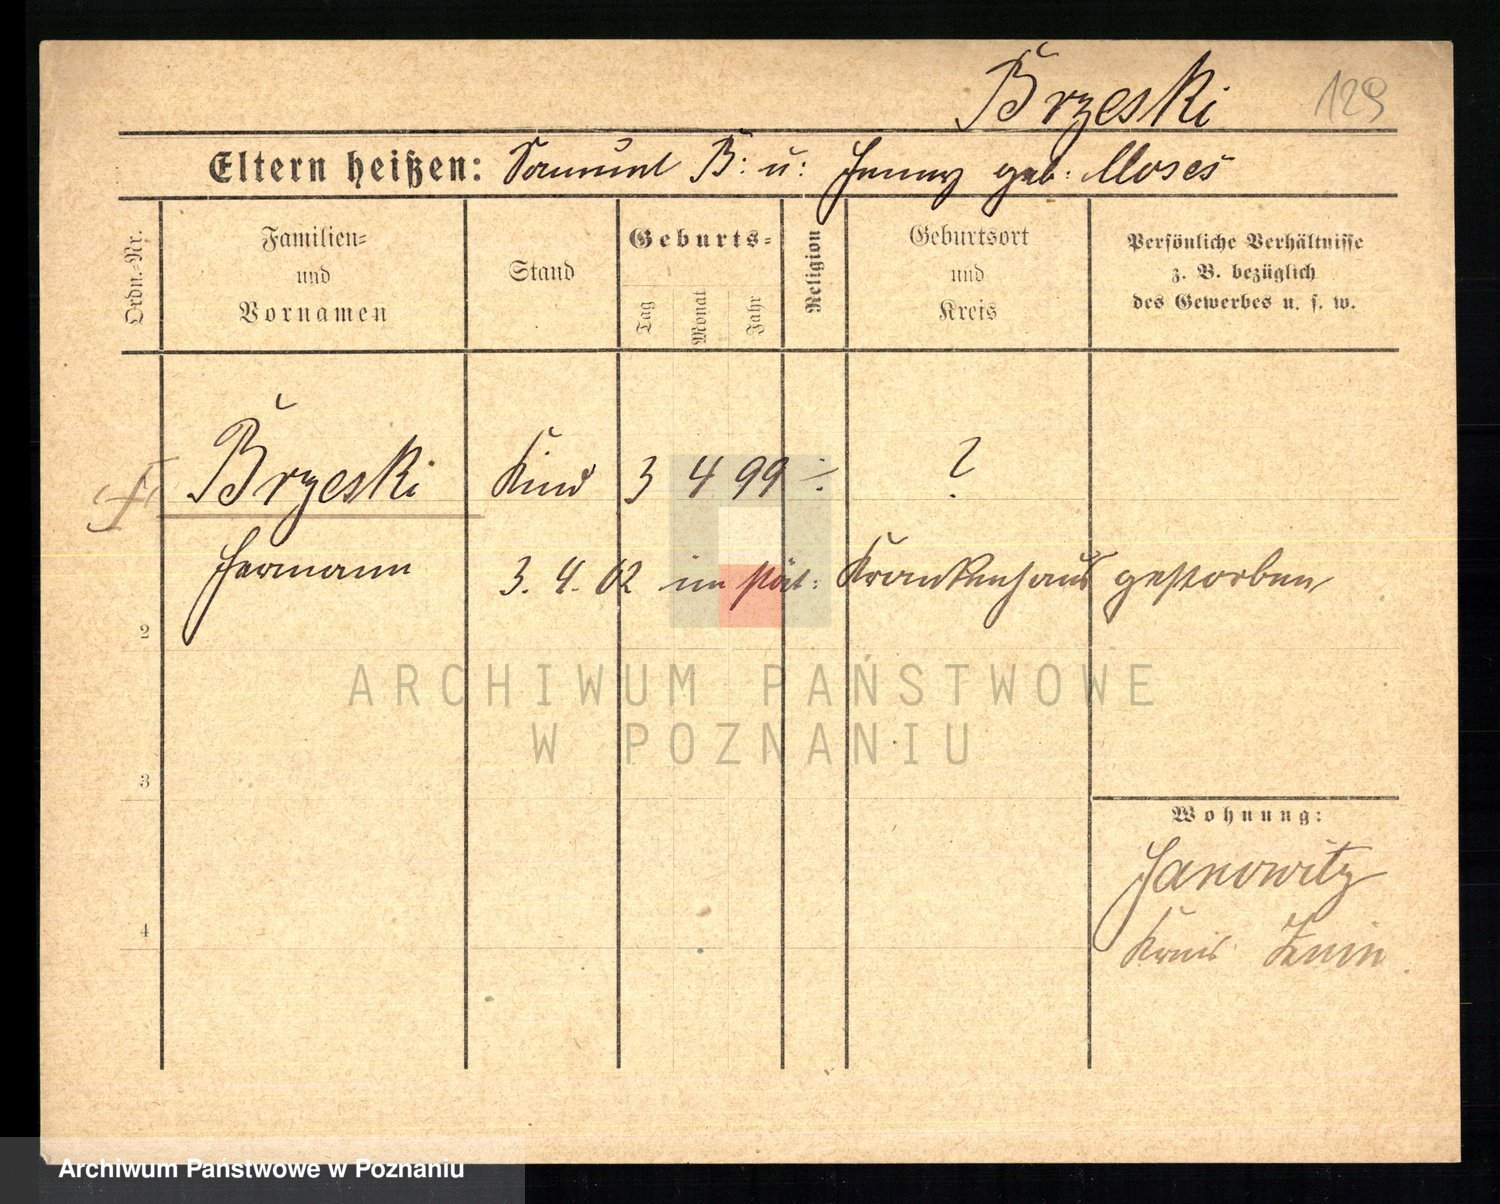 Brzeski 129
Eltern heißen: Samuel B: u: Jenny geb. Moses
Ordn.-Nr.
Familien-
und
Vornamen
Stand
Geburts-
Tag
Monat
Jahr
Religion
Geburtsort
und
Kreis
Persönliche Verhältnisse
z. B. bezüglich
des Gewerbes u. s. w.
Brzeski Kind 3 4 99 ?
Hermann 3. 4. 02 im städt: Krankenhaus gestorben
2
3
4
Wohnung:
Janowitz
Kreis Znin
ARCHIWUM PAŃSTWOWE
W POZNANIU
Archiwum Państwowe w Poznaniu